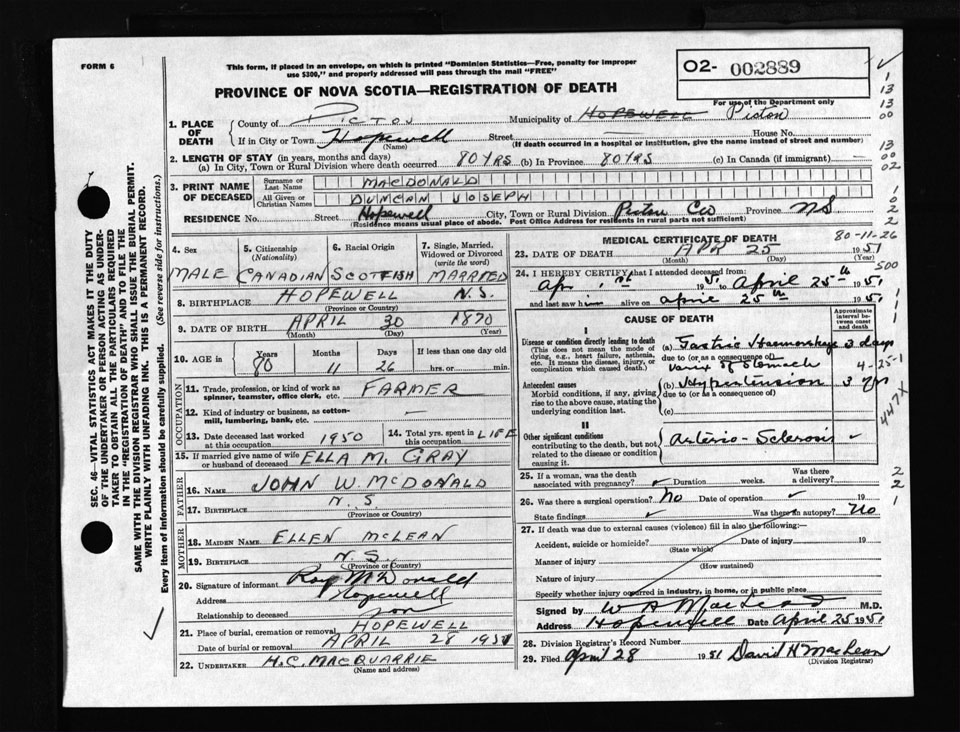 FORM 6
This form, if placed in an envelope, on which is printed "Dominion Statistics—Free, penalty for improper
use $300," and properly addressed will pass through the mail "FREE"
O2- 002889
For use of the Department only
PROVINCE OF NOVA SCOTIA—REGISTRATION OF DEATH
1. PLACE OF DEATH County of PICTOU Municipality of HOPEWELL Pictou
If in City or Town Hopewell (Name) Street House No.
(If death occurred in a hospital or institution, give the name instead of street and number)
2. LENGTH OF STAY (in years, months and days)
(a) In City, Town or Rural Division where death occurred 80 YRS (b) In Province 80 YRS (c) In Canada (if immigrant) —
3. PRINT NAME OF DECEASED Surname or Last Name MACDONALD
All Given or Christian Names DUNCAN JOSEPH
RESIDENCE No. Street Hopewell City, Town or Rural Division Pictou Co Province NS
(Residence means usual place of abode. Post Office Address for residents in rural parts not sufficient)
4. Sex 5. Citizenship (Nationality) 6. Racial Origin 7. Single, Married, Widowed or Divorced (write the word)
MALE CANADIAN SCOTTISH MARRIED
8. BIRTHPLACE HOPEWELL N.S.
(Province or Country)
9. DATE OF BIRTH APRIL 30 1870
(Month) (Day) (Year)
10. AGE in Years Months Days If less than one day old
80 11 26 hrs. or min.
OCCUPATION
11. Trade, profession, or kind of work as spinner, teamster, office clerk, etc. FARMER
12. Kind of industry or business, as cotton-mill, lumbering, bank, etc. —
13. Date deceased last worked at this occupation 1950 14. Total yrs. spent in this occupation LIFE
15. If married give name of wife or husband of deceased ELLA M. GRAY
FATHER
16. NAME JOHN W. MCDONALD
17. BIRTHPLACE N.S.
(Province or Country)
MOTHER
18. MAIDEN NAME ELLEN MCLEAN
19. BIRTHPLACE N.S.
(Province or Country)
20. Signature of informant Roy McDonald
Address Hopewell
Relationship to deceased son
21. Place of burial, cremation or removal HOPEWELL
Date of burial or removal APRIL 28 1951
22. UNDERTAKER H.C. MACQUARRIE
(Name and address)
80-11-26
MEDICAL CERTIFICATE OF DEATH
23. DATE OF DEATH APR 25 1951
(Month) (Day) (Year)
24. I HEREBY CERTIFY that I attended deceased from:
Apr 1st 1951 to April 25th 1951
and last saw him alive on April 25th 1951
CAUSE OF DEATH
Approximate interval between onset and death
I
Disease or condition directly leading to death (a) Gastric Haemorrhage 3 days
(This does not mean the mode of dying, e.g., heart failure, asthenia, etc. It means the disease, injury, or complication which caused death.)
due to (or as a consequence of)
Varix of Stomach 4-25-1
Antecedent causes (b) Hypertension 3 yrs
Morbid conditions, if any, giving rise to the above cause, stating the underlying condition last.
due to (or as a consequence of)
(c)
II
Other significant conditions Arterio-Sclerosis
contributing to the death, but not related to the disease or condition causing it.
25. If a woman, was the death associated with pregnancy? Duration weeks. Was there a delivery?
26. Was there a surgical operation? No Date of operation 19
State findings Was there an autopsy? No
27. If death was due to external causes (violence) fill in also the following:—
Accident, suicide or homicide? Date of injury 19
(State which)
Manner of injury
(How sustained)
Nature of injury
Specify whether injury occurred in industry, in home, or in public place
Signed by M.D.
Address Hopewell Date April 25 1951
28. Division Registrar's Record Number
29. Filed April 28 1951 David H MacLean
(Division Registrar)
1
13
13
00
13
00
02
500
447X
2
2
1
SEC. 46—VITAL STATISTICS ACT MAKES IT THE DUTY
OF THE UNDERTAKER OR PERSON ACTING AS UNDER-
TAKER TO OBTAIN ALL THE PARTICULARS REQUIRED
IN THE "REGISTRATION OF DEATH" AND TO FILE THE
SAME WITH THE DIVISION REGISTRAR WHO SHALL ISSUE THE BURIAL PERMIT.
WRITE PLAINLY WITH UNFADING INK. THIS IS A PERMANENT RECORD.
Every item of Information should be carefully supplied. (See reverse side for instructions.)